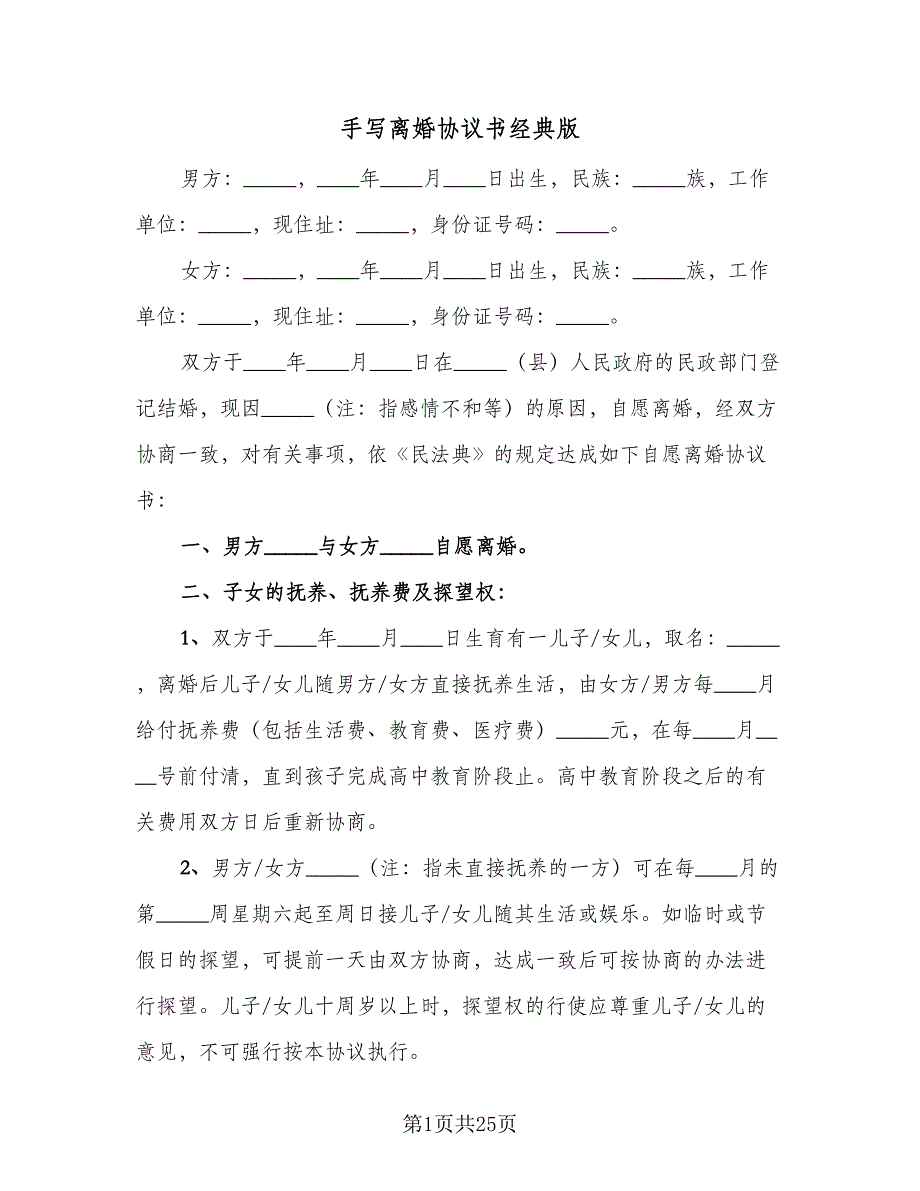 手写离婚协议书经典版
男方：_____，____年____月____日出生，民族：_____族，工作
单位：_____，现住址：_____，身份证号码：_____。
女方：_____，____年____月____日出生，民族：_____族，工作
单位：_____，现住址：_____，身份证号码：_____。
双方于____年____月____日在_____（县）人民政府的民政部门登
记结婚，现因_____（注：指感情不和等）的原因，自愿离婚，经双方
协商一致，对有关事项，依《民法典》的规定达成如下自愿离婚协议
书：
一、男方_____与女方_____自愿离婚。
二、子女的抚养、抚养费及探望权：
1、双方于____年____月____日生育有一儿子/女儿，取名：_____
，离婚后儿子/女儿随男方/女方直接抚养生活，由女方/男方每____月
给付抚养费（包括生活费、教育费、医疗费）_____元，在每____月__
__号前付清，直到孩子完成高中教育阶段止。高中教育阶段之后的有
关费用双方日后重新协商。
2、男方/女方_____（注：指未直接抚养的一方）可在每____月的
第_____周星期六起至周日接儿子/女儿随其生活或娱乐。如临时或节
假日的探望，可提前一天由双方协商，达成一致后可按协商的办法进
行探望。儿子/女儿十周岁以上时，探望权的行使应尊重儿子/女儿的
意见，不可强行按本协议执行。
第1页共25页